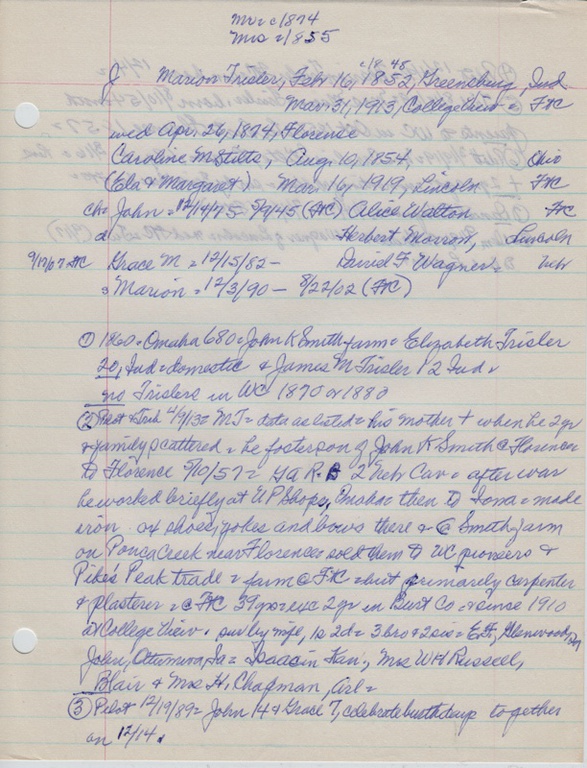 Mov c/1874
Mvd c/1855
c/8-45
J Marion Trisler, Feb 16, 1852, Greensburg, Ind
Mar 31, 1913, College View = FtC
wed Apr. 26, 1874, Florence
Caroline M Stilts, Aug 10, 1854, Ohio
(Ela & Margaret) Mar 16, 1919, Lincoln FtC
ch = John = 12/14/75 - 5/9/45 (FtC) Alice Walton FtC
d Herbert Morrow, Lincoln
9/19/67 FtC Grace M = 12/15/82 - David F Wagner
Marion = 12/3/90 - 8/22/02 (FtC)
① 1860 = Omaha 680 = John K Smith farm = Elizabeth Trisler
20, Ind = domestic & James M Trisler 12 Ind
no Trislers in WC 1870 or 1880
② Pilot & Trib 4/9/13 = MJ = data as listed = his mother + when he 2 yr
& family scattered = he foster son of John K Smith @ Florence
to Florence 5/10/57 = GAR 2 Neb Cav = after war
he worked briefly at UP Shops, Omaha = then to Iowa = made
iron ox shoes, yokes and bows there & @ Smith farm
on Ponca Creek near Florence = sold them to UC pioneers &
Pike's Peak trade = farm @ FtC = but primarily carpenter
& plasterer = @ FtC 39 yrs exc 2 yr in Burt Co = since 1910
at College View = surv by wife, 1s 2d = 3 bro & 2 sis = Ed, Glenwood,
John, Ottumwa, Ia = Isaac in Kan, Mrs WH Russell,
Blair & Mrs H. Chapman,
③ Pilot 12/19/89 = John 14 & Grace 7, celebrate birthdays together
on 12/14.